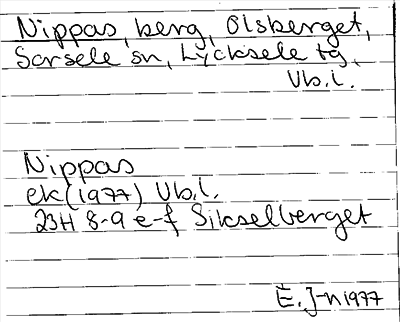 Nippas, berg, Olsberget,
Sorsele sn, Lycksele tg,
Vb.l.
Nippas
ek (1977) Vb.l.
23H 8-9 e-f Sikselberget
E. J-n 1977